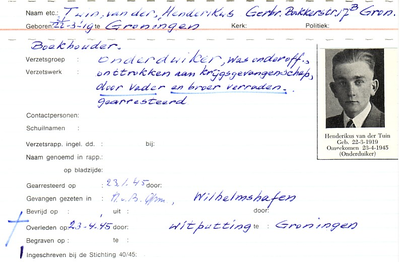 Naam etc.: Tuin, van der, Henderikus Gerbr. Bakkerstr. 17B Gron.
Geboren: 22-3-19 in Groningen Kerk: Politiek:
Boekhouder.
Verzetsgroep : onderduiker, was onderoff.,
Verzetswerk : onttrokken aan krijgsgevangenschap,
door vader en broer verraden.
gearresteerd
Contactpersonen:
Schuilnamen :
Verzetsrapp. ingel. dd. : bij:
Naam genoemd in rapp.:
op bladzijde:
Gearresteerd op : 23.1.45 door:
Gevangen gezeten in : H.v.B. Gron., Wilhelmshafen
Bevrijd op : , uit : door:
Overleden op : 23-4-45 door: uitputting te: Groningen
Begraven op : te:
Ingeschreven bij de Stichting 40/45:
Henderikus van der Tuin
Geb. 22-3-1919
Omgekomen 23-4-1945
(Onderduiker)